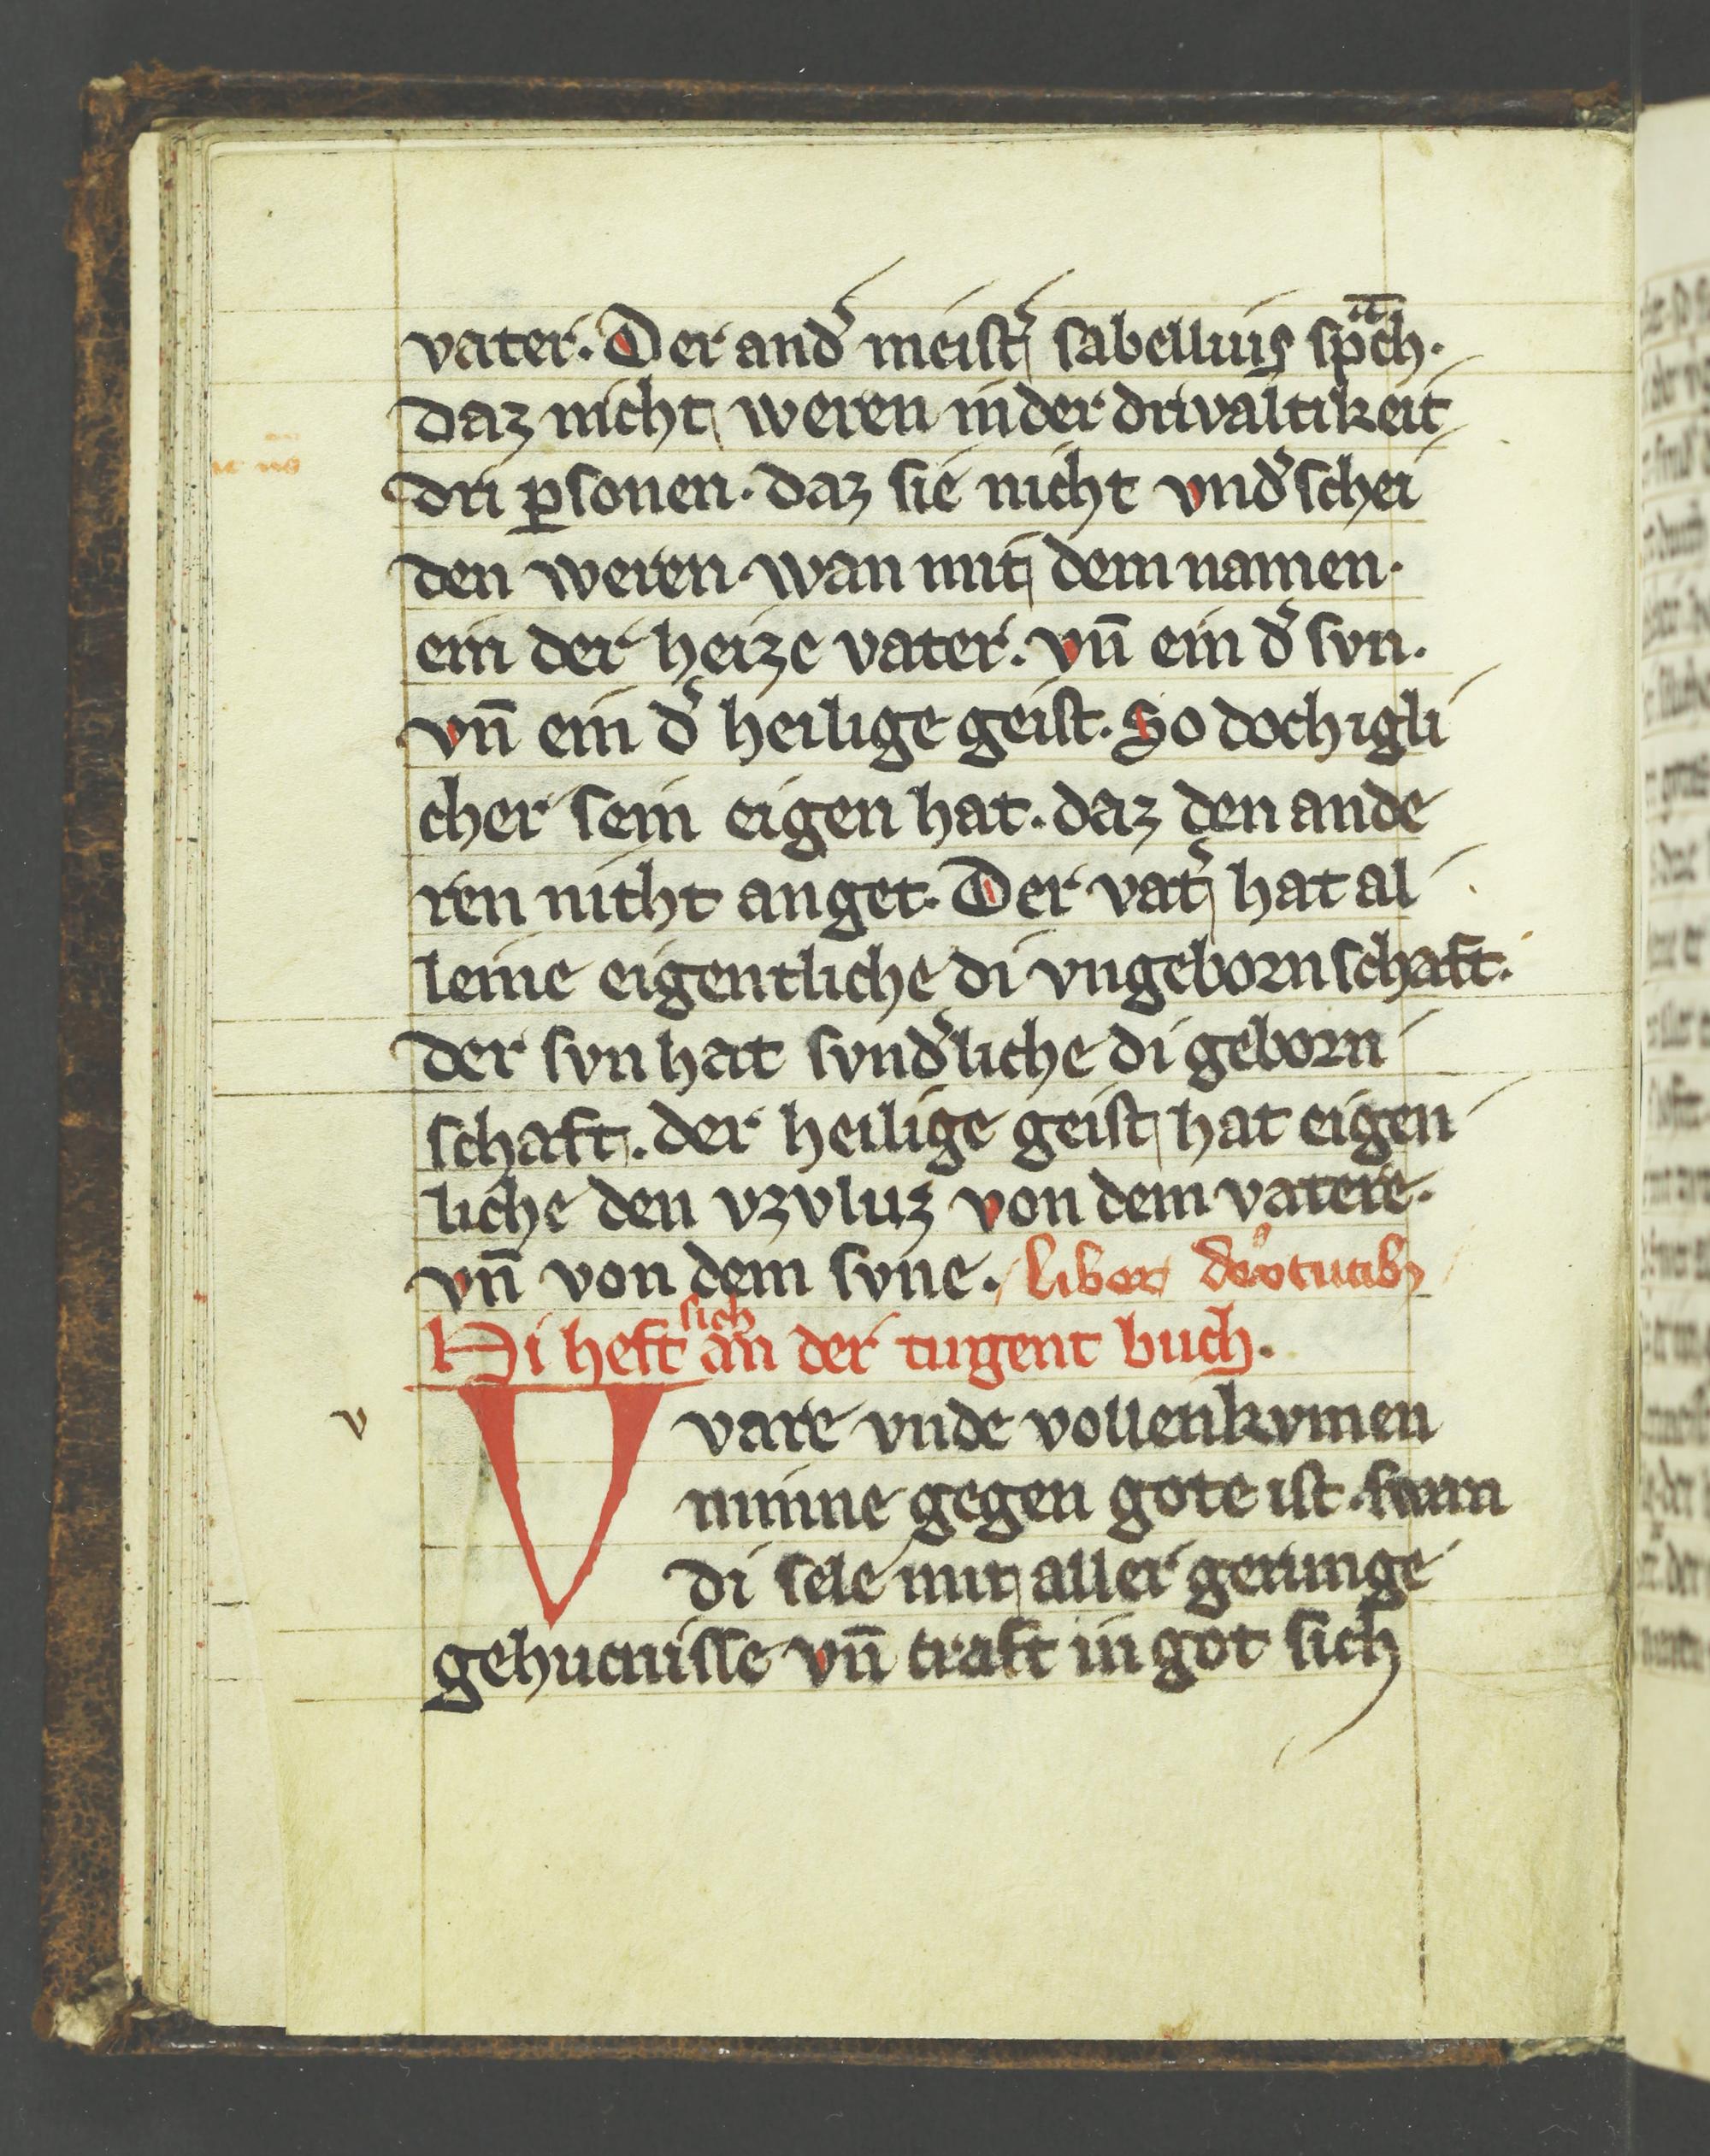 vater. Der and̓ meist̓ sabellius sp̄ͣch.
daz nicht weren inder drivaltikeit
dri ꝑsonen. daz sie nicht vnd̓schei
den weren. wan mit dem namen.
ein der heize vater. vn̄ ein d̓ svn.
vn̄ ein d̓ heilige geist. So doch igli
cher sein eigen hat. daz den ande
ren nicht anget. Der vat̓ hat al
leine eigentliche di vngebornschaft.
der svn hat svnd̓liche di geborn
schaft. der heilige geist hat eigen
liche den vzvluz von dem vatere.
vn̄ von dem svne. Liber de v̓tutibꝫ
Hi heft sich an der tugent buch.
v
V vare vnde vollenkvmen
minne gegen gote ist. swan
di sele mit aller gerunge
gehucnisse vn̄ craft in got sich